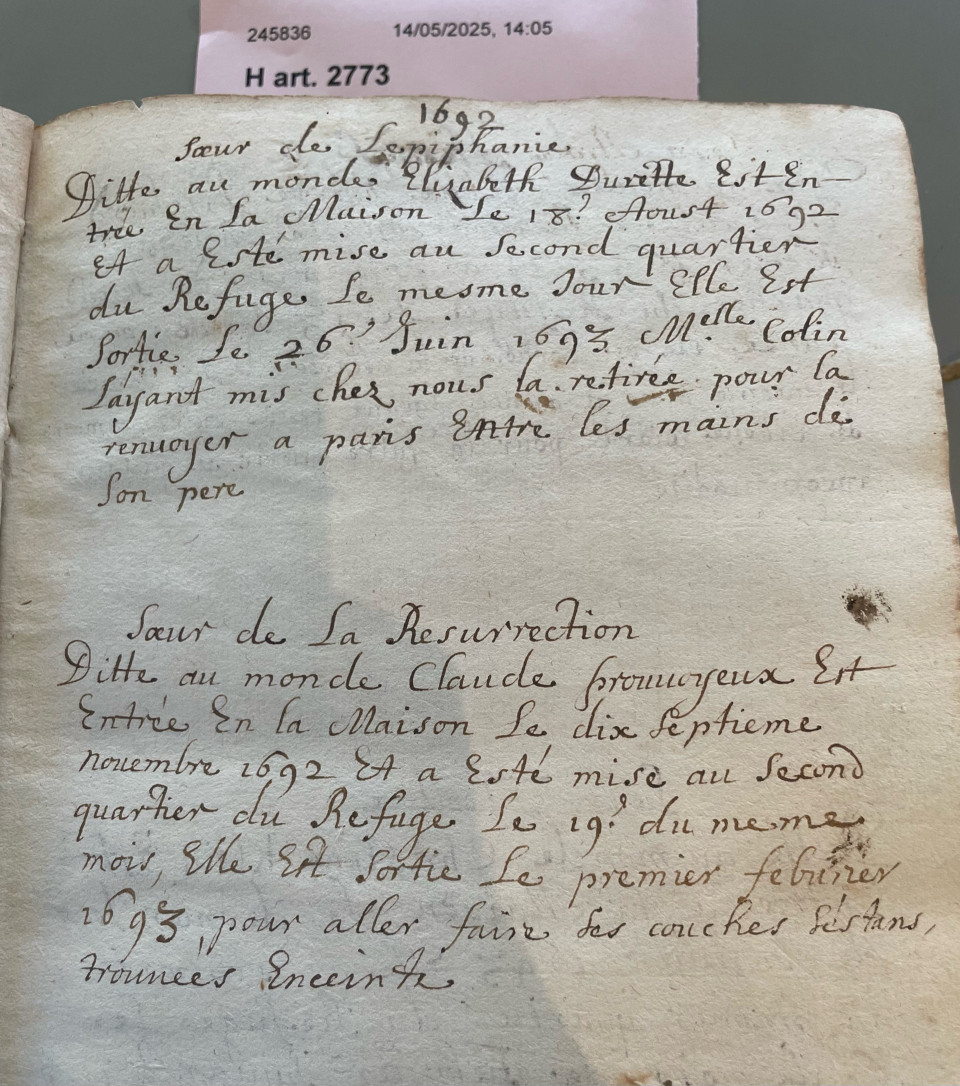 245836 14/05/2025, 14:05
H art. 2773
1692
Sœur de Lepiphanie
Ditte au monde Elizabeth Durette Est En-
trée En La Maison Le 18.e Aoust 1692
Et a Esté mise au Second quartier
du Refuge Le mesme Jour Elle Est
Sortie Le 26.e Juin 1693 M.elle Colin
Layant mis chez nous la retirée pour la
renuoyer a paris Entre les mains de
Son pere
Sœur de La Resurrection
Ditte au monde Claude prouuoyeux Est
Entrée En la Maison Le dix Septieme
nouembre 1692 Et a Esté mise au Second
quartier du Refuge Le 19.e du meme
mois, Elle Est Sortie Le premier feburier
1693, pour aller faire Ses couches Séstans,
trouuées Enceinte